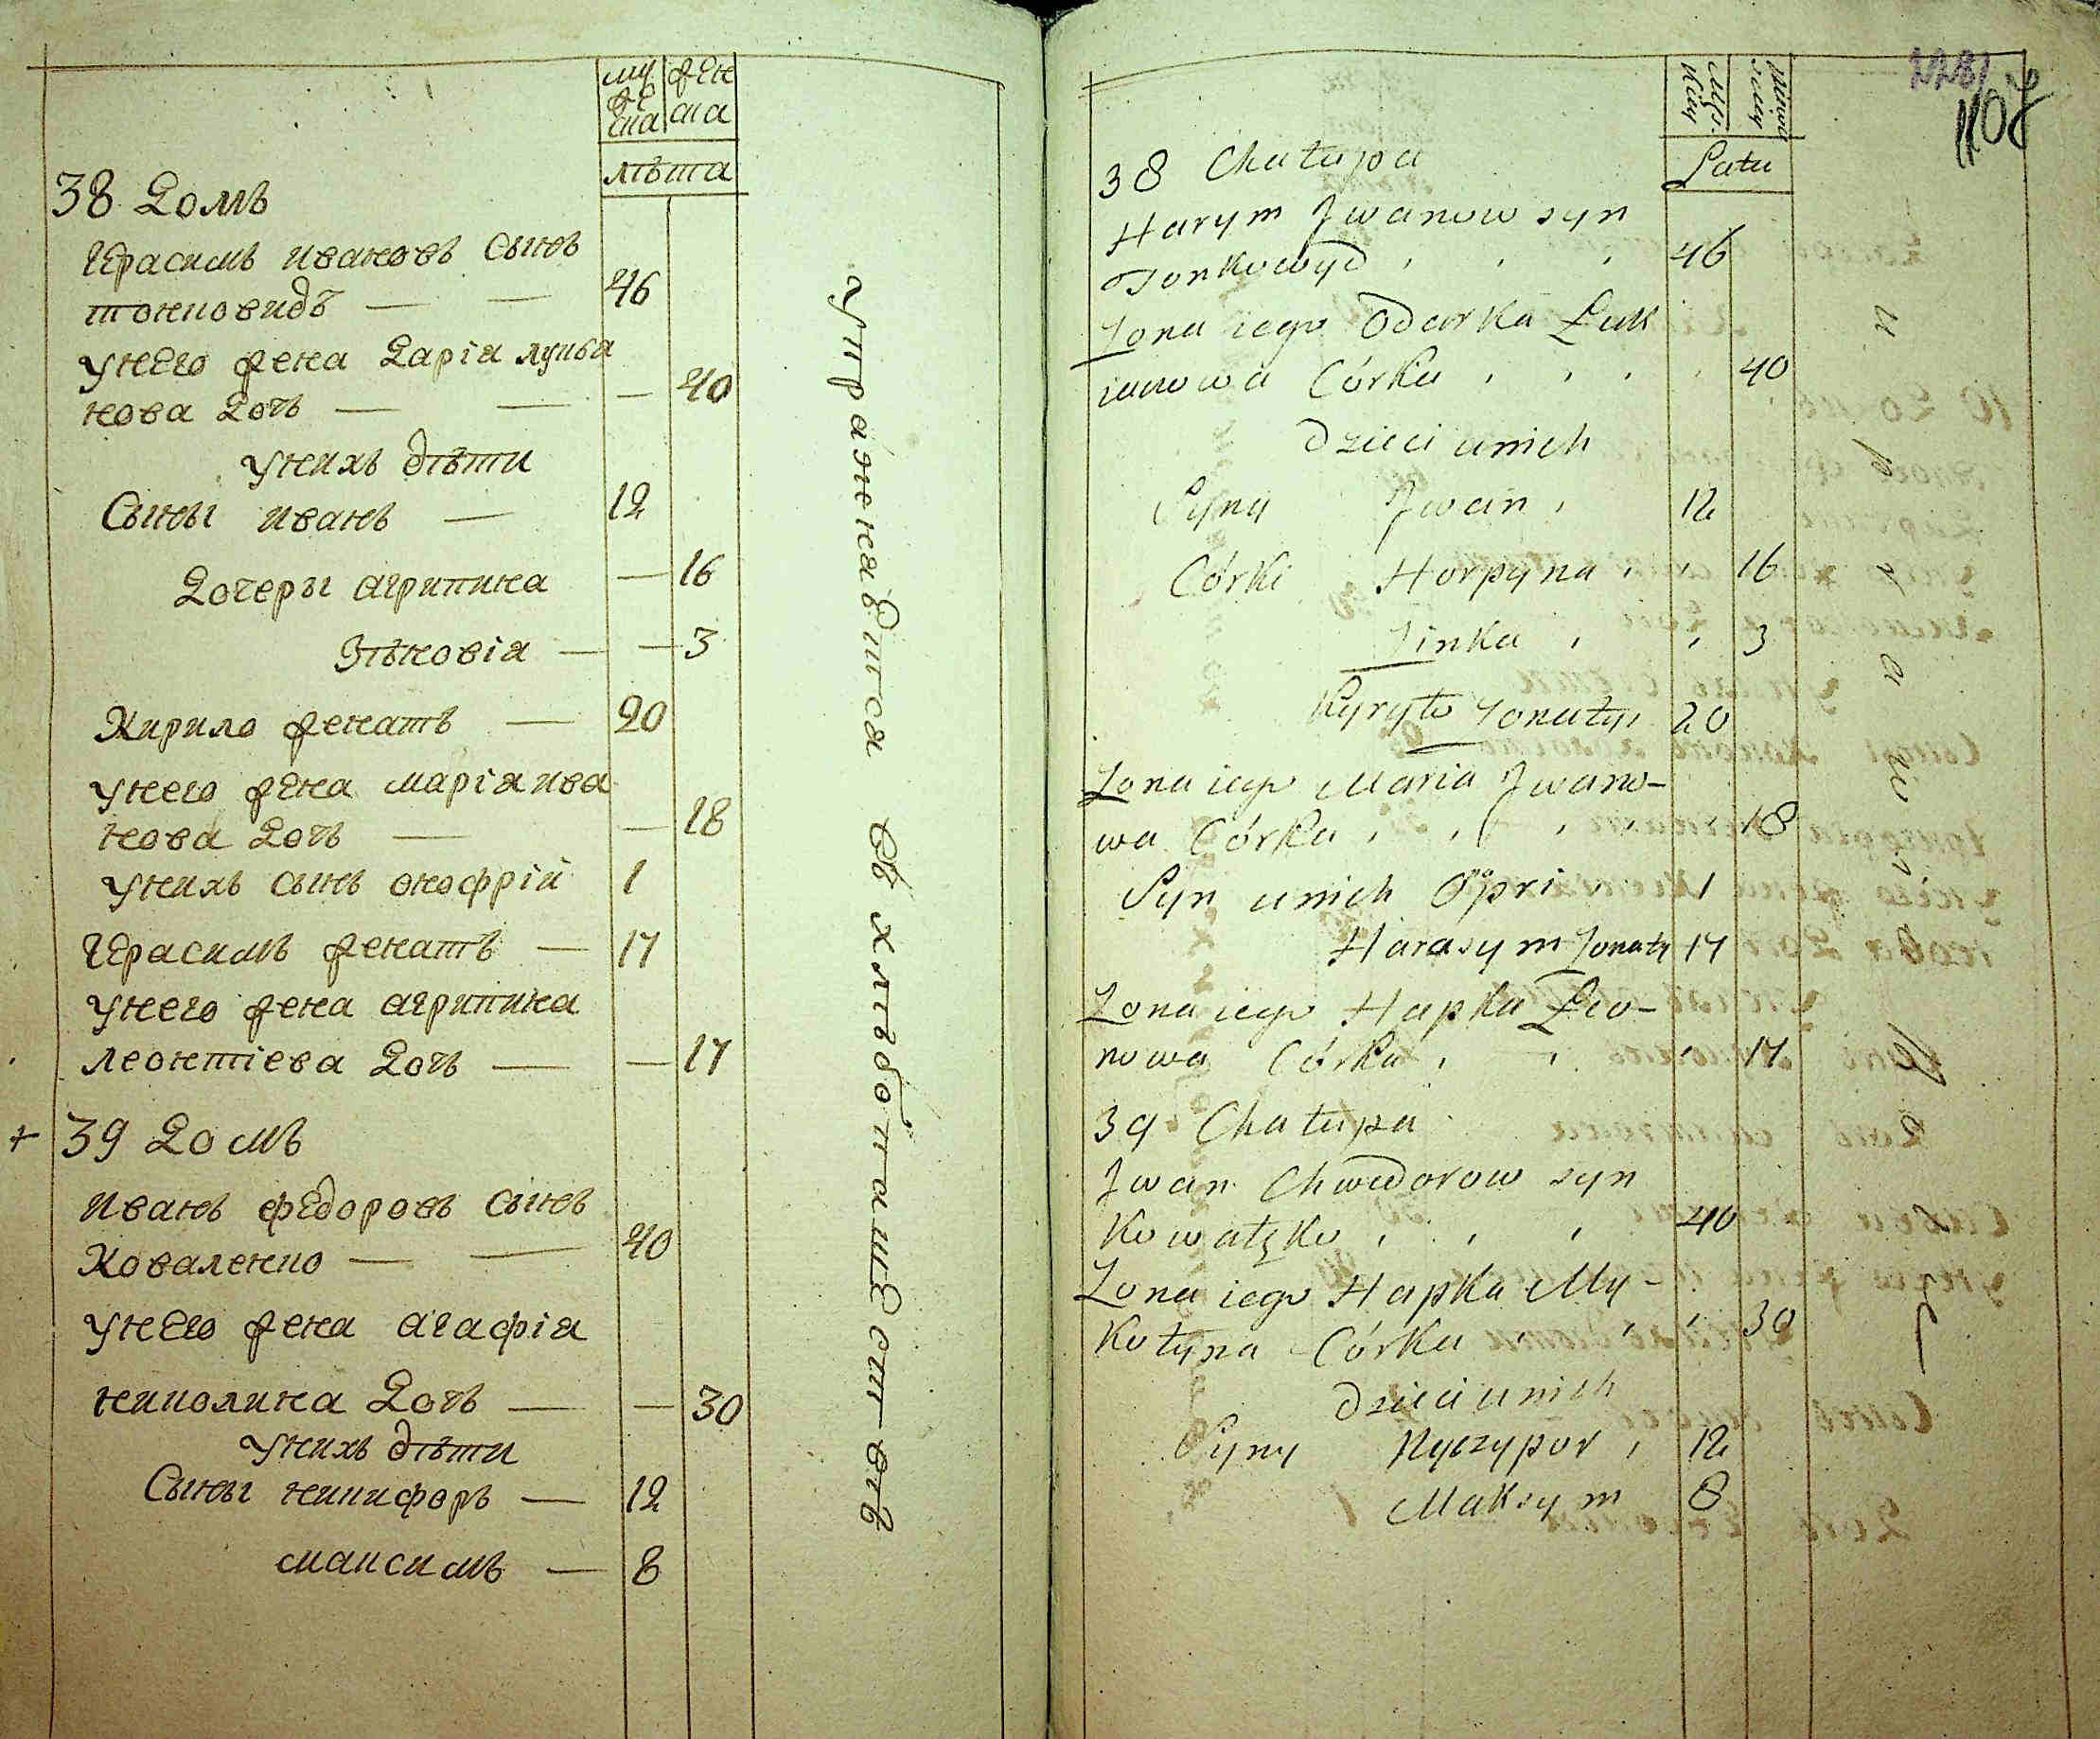 му
же
ска
жен
ска
лѣта
38 Домъ
Герасимъ Ивановъ сынъ
тонковидъ — — 46
унего жена Дарія лукья
нова Дочь — — — 40
унихъ дѣти
Сыны иванъ — 12
Дочеры агрипина — 16
Зѣновія — — 3
Кирило женатъ — 20
унего жена марія ива
нова Дочь — — 18
унихъ сынъ онофрій 1
Герасимъ женатъ — 17
унего жена агрипина
леонтіева Дочь — — 17
+ 39 Домъ
Иванъ федоровъ сынъ
Коваленко — — 40
унего жена агафія
николина Дочь — — 30
унихъ дѣти
Сыны никифоръ — 12
максимъ — 8
упражнаєтся въ хлѣбопашествѣ
228
38 Chałupa
Latu
Harym Jwanow syn
Tonkowyd 46
Zona iego Odarka Łuk
ianowa Córka 40
dzieci unich
Syny Jwan 12
Córki Horpyna 16
Zinka 3
Kyryło Zonaty 20
Zona iego Maria Jwano-
wa Córka 18
Syn unich Opri 1
Harasym Zonaty 17
Zona iego Hapka Leo-
nowa Córka 17
39 Chałupa
Jwan Chwedorow syn
Kowalęko 40
Zona iego Hapka My-
kołyna Córka 30
dzieci unich
Syny Nyczypor 12
Maksym 8